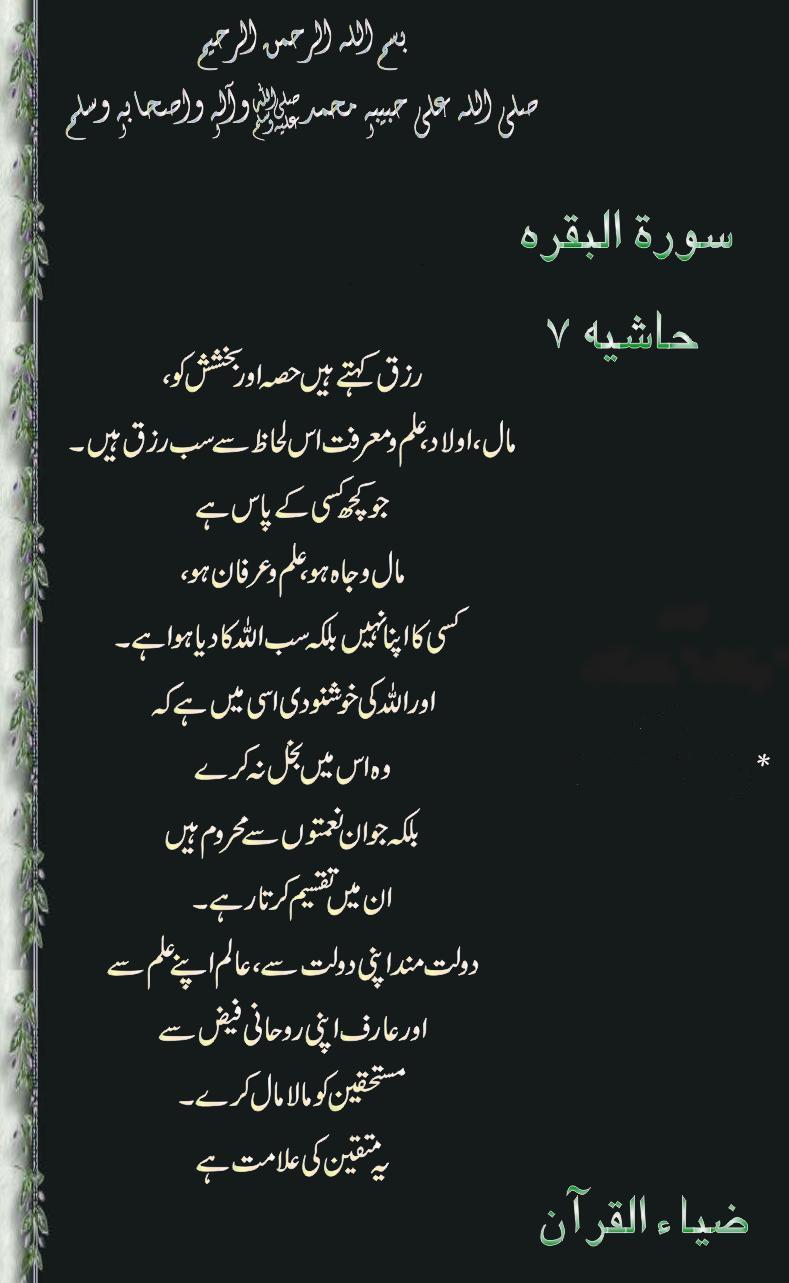 بسم الله الرحمن الرحیم
صلی الله علی حبیبہٖ محمدﷺ وآلہٖ واصحابہٖ وسلم
سورة البقره
حاشیه ۷
رزق کہتے ہیں حصہ اور بخشش کو،
مال، اولاد، علم و معرفت اس لحاظ سے سب رزق ہیں۔
جو کچھ کسی کے پاس ہے
مال و جاہ ہو، علم و عرفان ہو،
کسی کا اپنا نہیں بلکہ سب اللہ کا دیا ہوا ہے۔
اور اللہ کی خوشنودی اسی میں ہے کہ
وہ اس میں بخل نہ کرے
*
بلکہ جو ان نعمتوں سے محروم ہیں
ان میں تقسیم کرتا رہے۔
دولت مند اپنی دولت سے، عالم اپنے علم سے
اور عارف اپنی روحانی فیض سے
مستحقین کو مالا مال کرے۔
یہ متقین کی علامت ہے
ضیاء القرآن